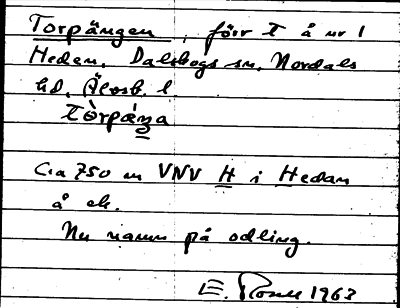 Torpängen, förr t å nr 1
Hedan, Dalskogs sn, Nordals
hd, Älvsb. l
tòrpæ̀ŋa
Ca 750 m VNV H i Hedan
å ek.
Nu namn på odling.
E. 1963